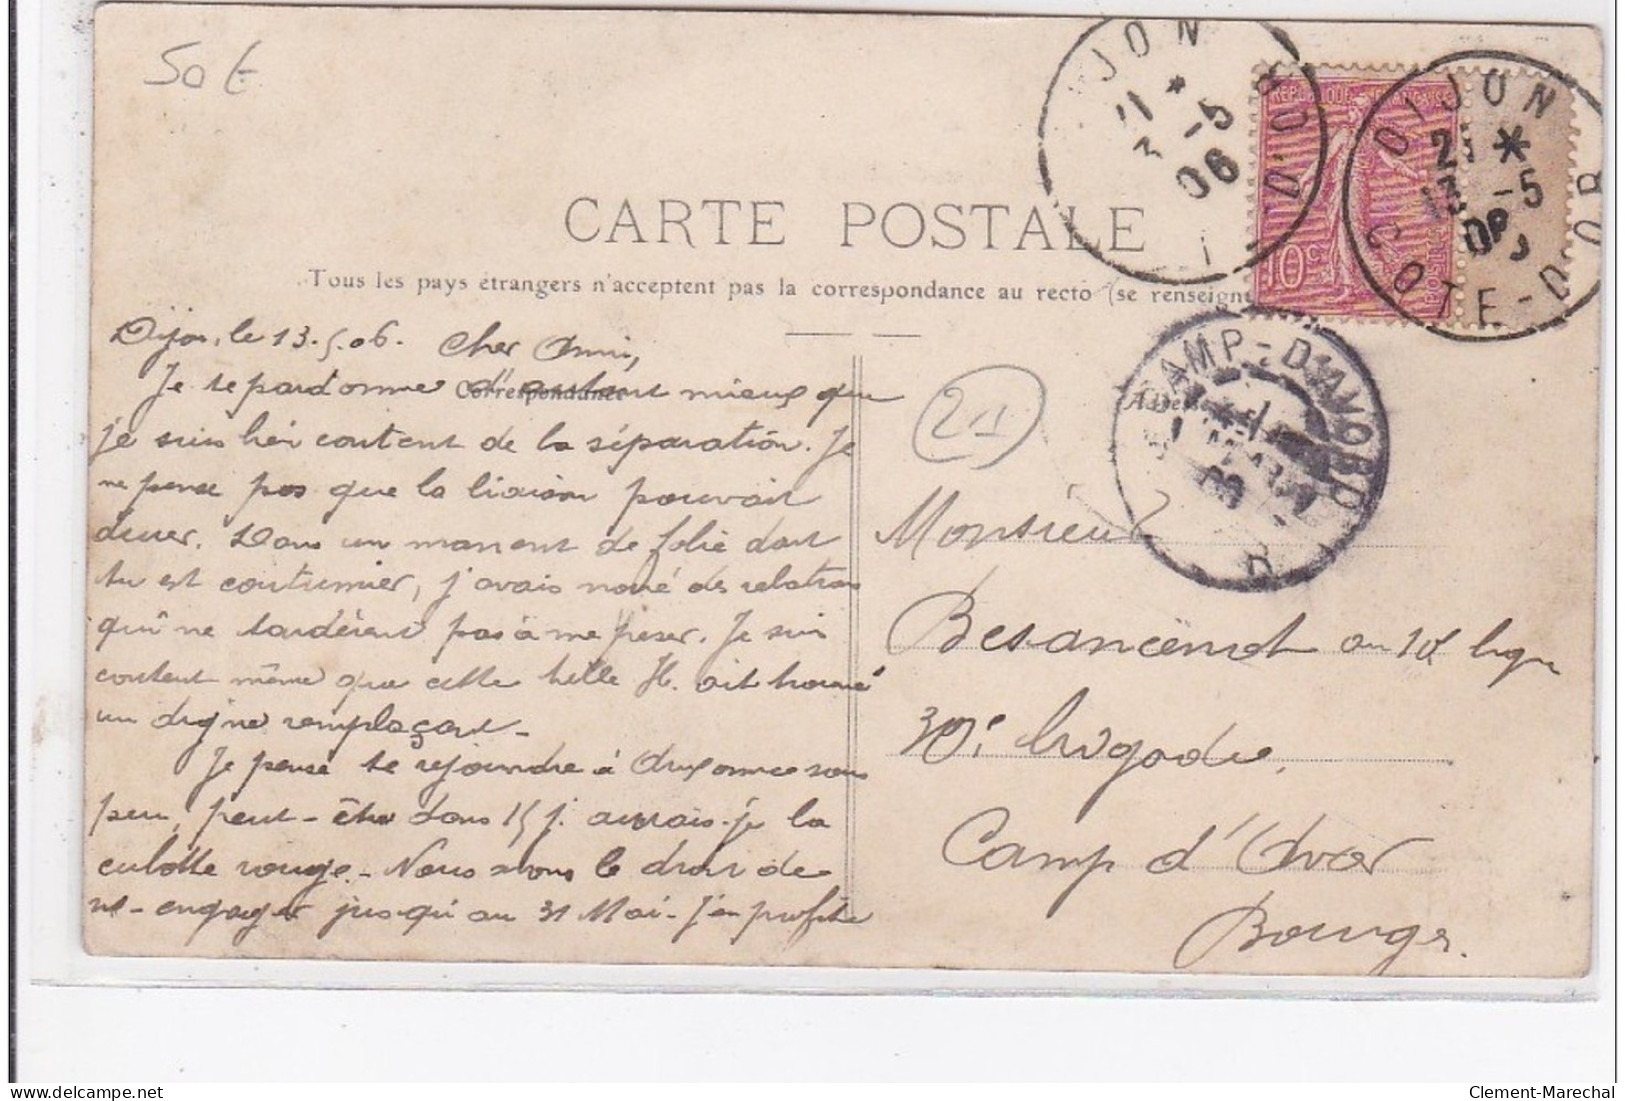 50 €
DIJON
21 *
3 -5
06
D'OR
RÉPUBLIQUE FRANÇAISE
10 c
POSTES
DIJON
21 *
13 -5
06
COTE-D'OR
CARTE POSTALE
Tous les pays étrangers n'acceptent pas la correspondance au recto (se renseigne
Dijon, le 13.5.06. Cher Ami,
Correspondance
Je te pardonne d'autant mieux que
je suis bien content de la séparation. Je
ne pense pas que la liaison pouvait
durer. Dans un moment de folie dont
tu est coutumier, j'avais noué des relations
qui ne tardèrent pas à me peser. Je suis
content même que cette belle H. ait trouvé
un digne remplaçant -
Je pense te rejoindre à Auxonne sous
peu, peut-être dans 15 j. aurais-je la
culotte rouge. - Nous avons le droit de
r-engager jusqu'au 31 Mai - J'en profite
21
CAMP-D'AVORD
Adresse
Monsieur
Besancenot au 10e ligne
30e brigade,
Camp d'Avor
Bourges.
Clement-Marechal